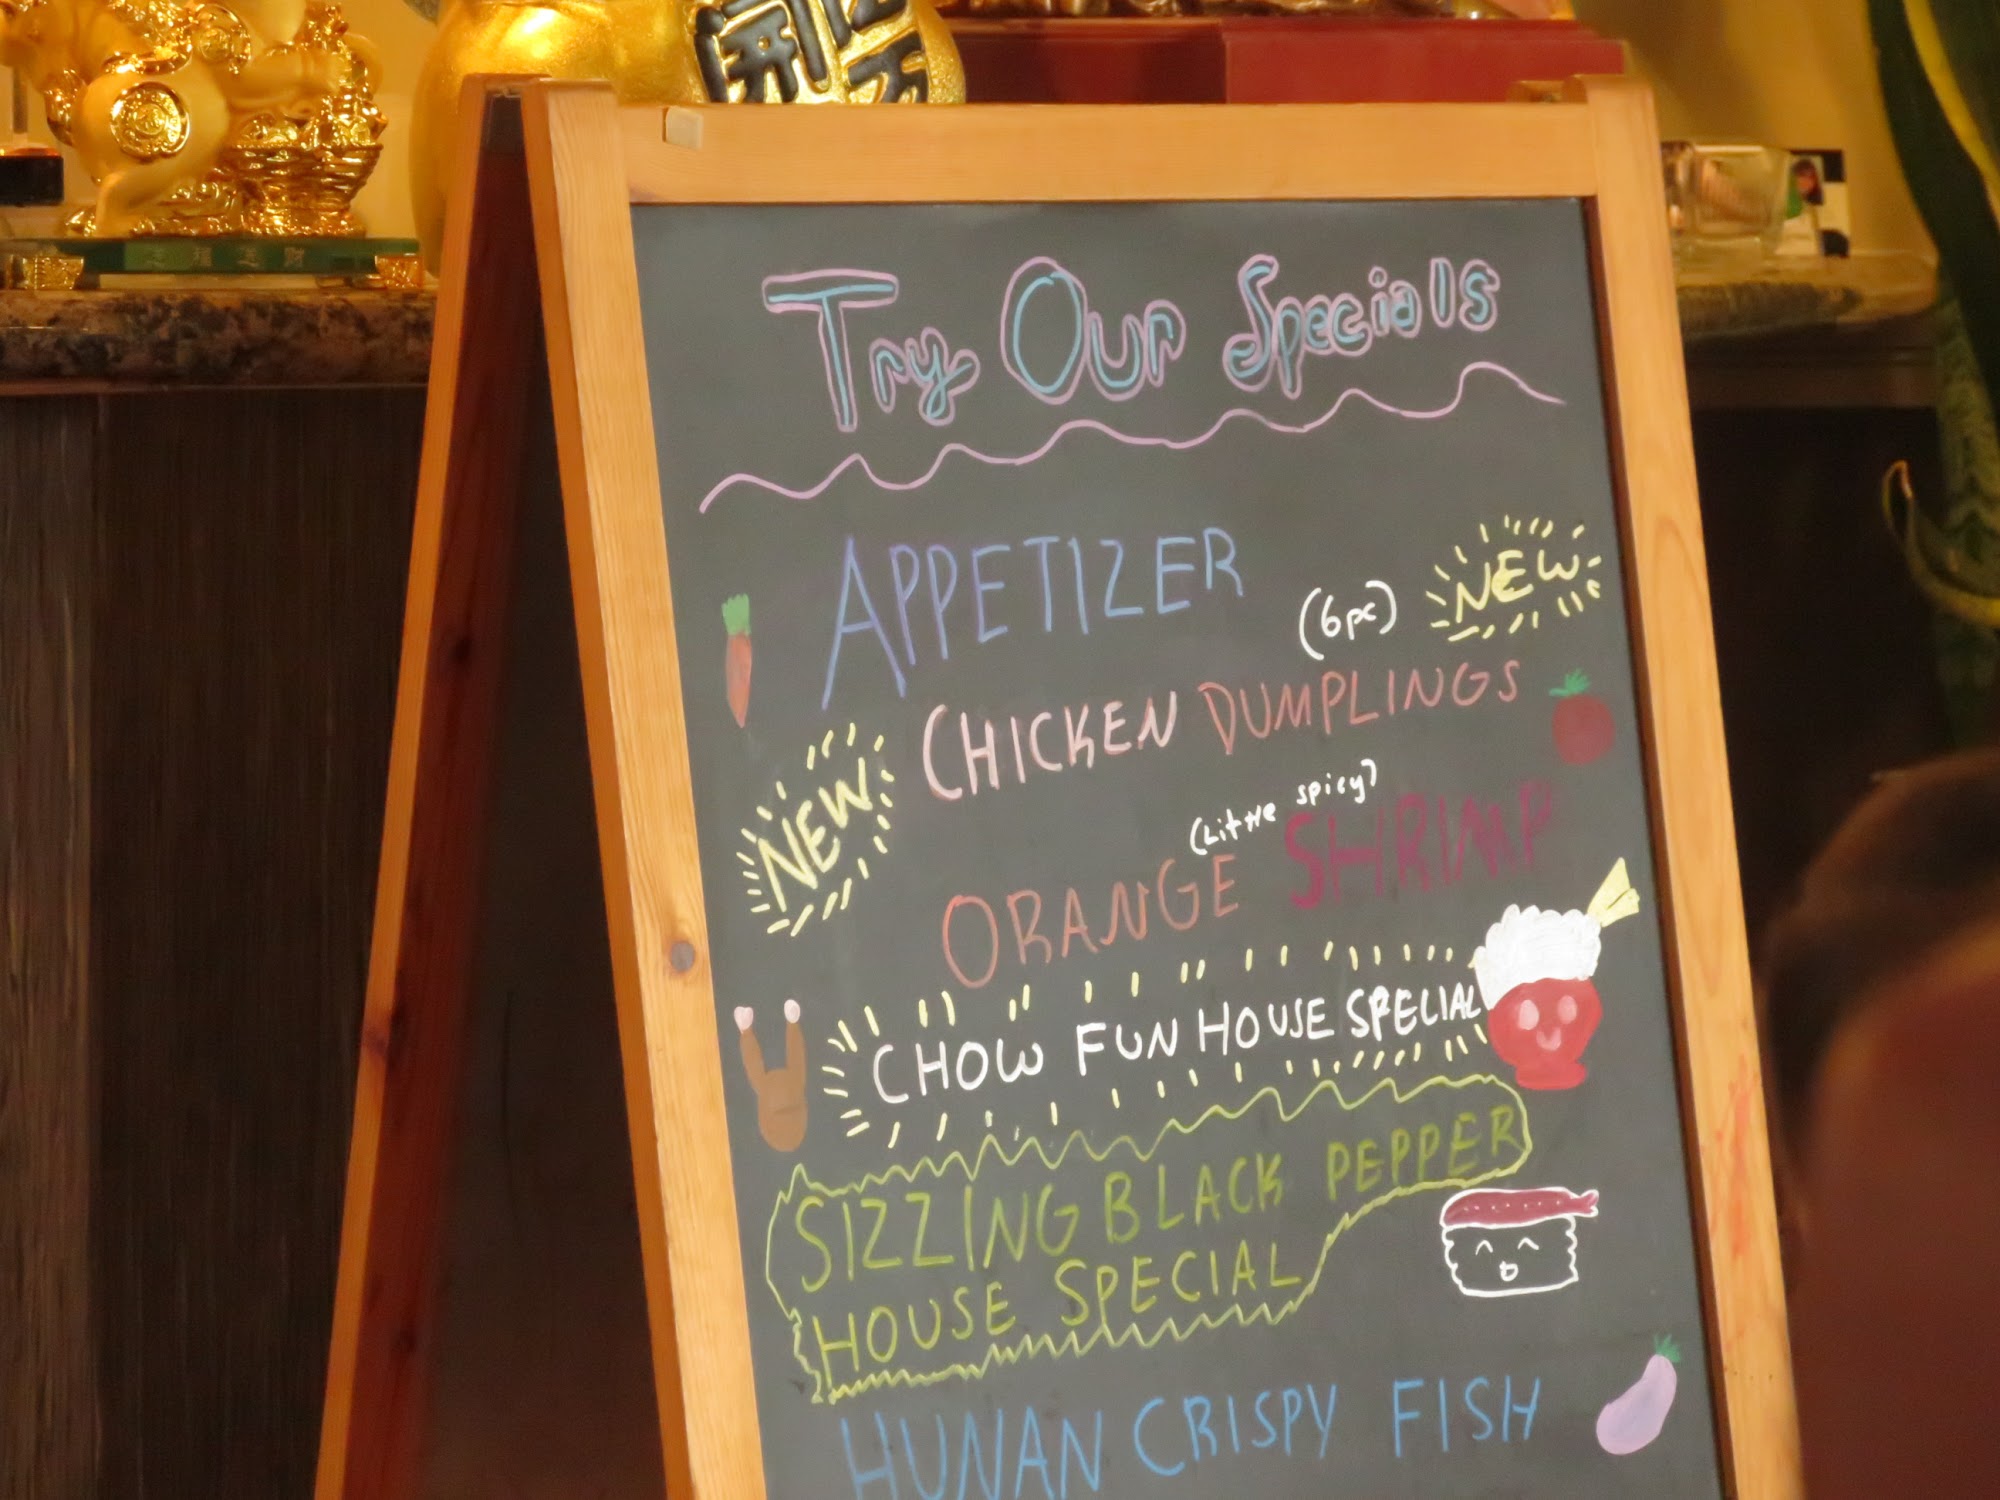 Try Our Specials
APPETIZER
(6pc) NEW
CHICKEN DUMPLINGS
NEW
(Little spicy)
ORANGE SHRIMP
CHOW FUN HOUSE SPECIAL
SIZZING BLACK PEPPER
HOUSE SPECIAL
HUNAN CRISPY FISH